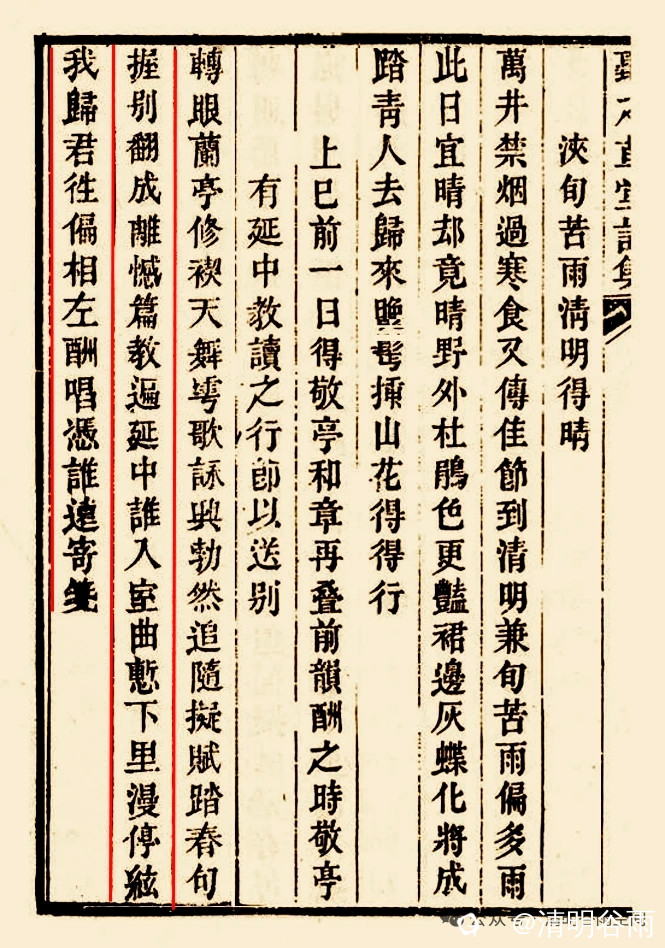 詩集 八
浹旬苦雨淸明得晴
萬井禁烟過寒食又傳佳節到淸明兼旬苦雨偏多雨
此日宜晴却竟晴野外杜鵑色更豔裙邊灰蝶化將成
踏靑人去歸來揷山花得得行
上巳前一日得敬亭和章再疊前韻酬之時敬亭
有延中教讀之行卽以送别
轉眼蘭亭修禊天舞雩歌詠興勃然追隨擬賦踏春句
握别翻成離憾篇教遍延中誰入室曲慙下里漫停絃
我歸君徃偏相左酬唱憑誰遠寄箋
公众号
@清明谷雨